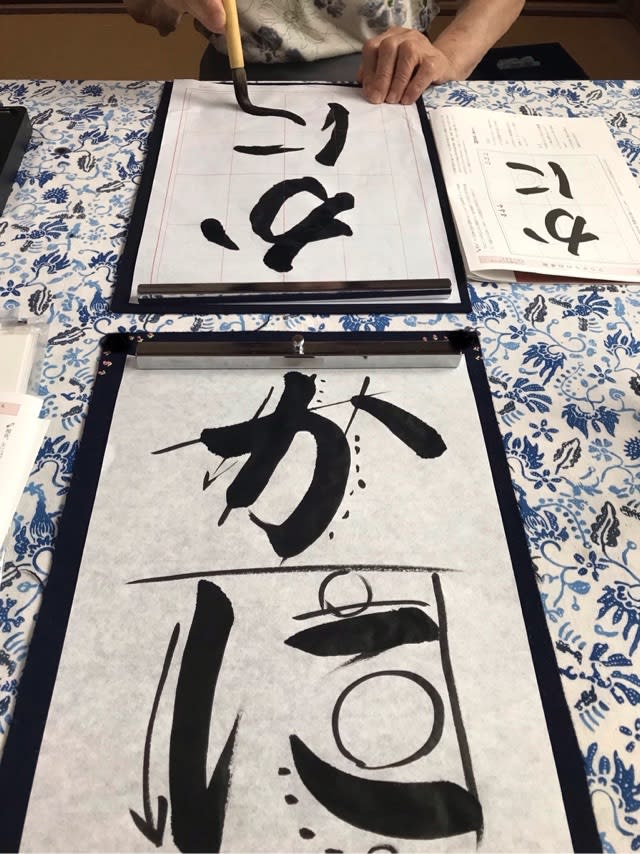 かに
かに
かに